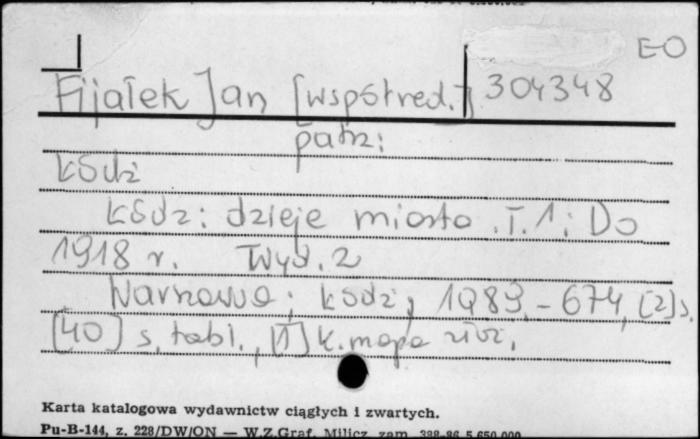 E-O
Fijałek Jan [współred.] 304348
patrz:
Łódź
Łódź: dzieje miasta. T. 1: Do
1918 r. Wyd. 2
Warszawa; Łódź, 1989. - 674, [2] s.
[40] s. tabl., [1] k. mapa
Karta katalogowa wydawnictw ciągłych i zwartych.
Pu-B-144, z. 228/DW/ON — W.Z.Graf. Milicz, zam. 398-86 5.650.000